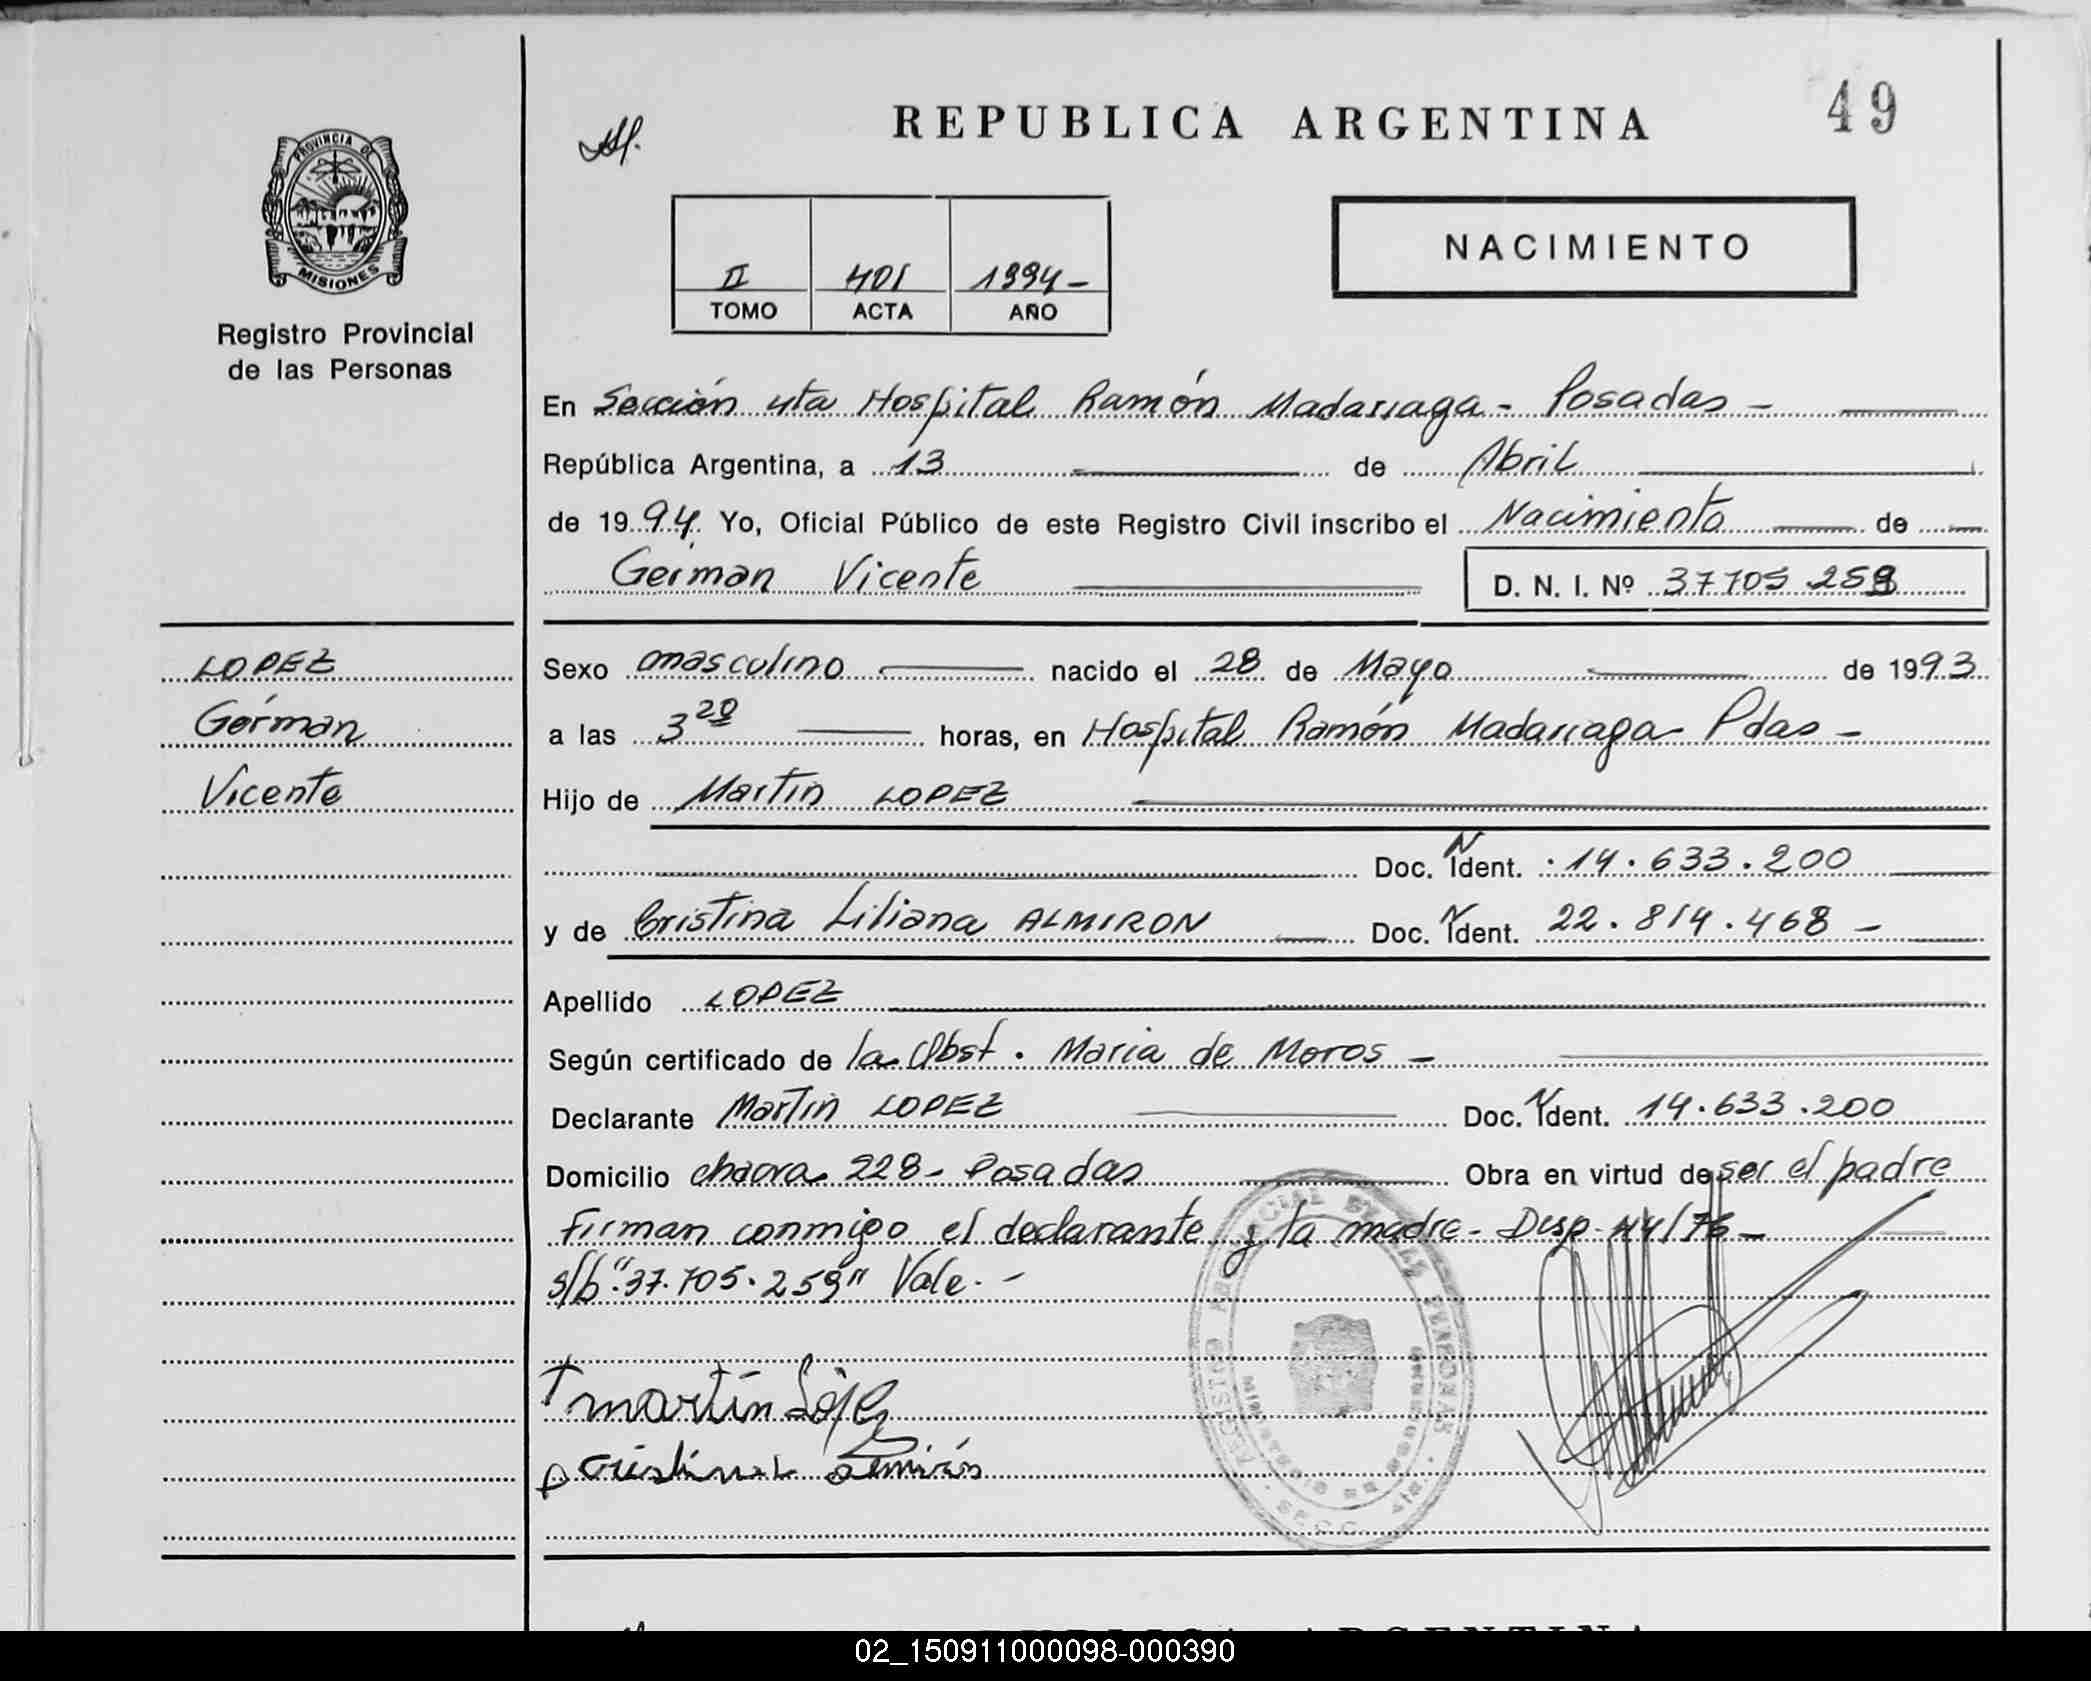 REPUBLICA ARGENTINA
49
PROVINCIA DE
MISIONES
Registro Provincial
de las Personas
II 401 1994-
TOMO ACTA AÑO
NACIMIENTO
En Sección 4ta Hospital Ramón Madariaga - Posadas -
República Argentina, a 13 de Abril
de 1994. Yo, Oficial Público de este Registro Civil inscribo el Nacimiento de
Germán Vicente D. N. I. Nº 37705.259
LOPEZ
Germán
Vicente
Sexo masculino nacido el 28 de Mayo de 1993
a las 3 20 horas, en Hospital Ramón Madariaga - Pdas -
Hijo de Martín LOPEZ
Doc. N Ident. 14.633.200
y de Cristina Liliana ALMIRON Doc. N Ident. 22.814.468 -
Apellido LOPEZ
Según certificado de la Obst. Maria de Moros -
Declarante Martín LOPEZ Doc. N Ident. 14.633.200
Domicilio chacra 228 - Posadas Obra en virtud de ser el padre
Firman conmigo el declarante y la madre - Disp. 44/76 -
s/b "37.705.259" Vale. -
martín López
Cristina L Almirón
REGISTRO PROVINCIAL DE LAS PERSONAS
02_150911000098-000390